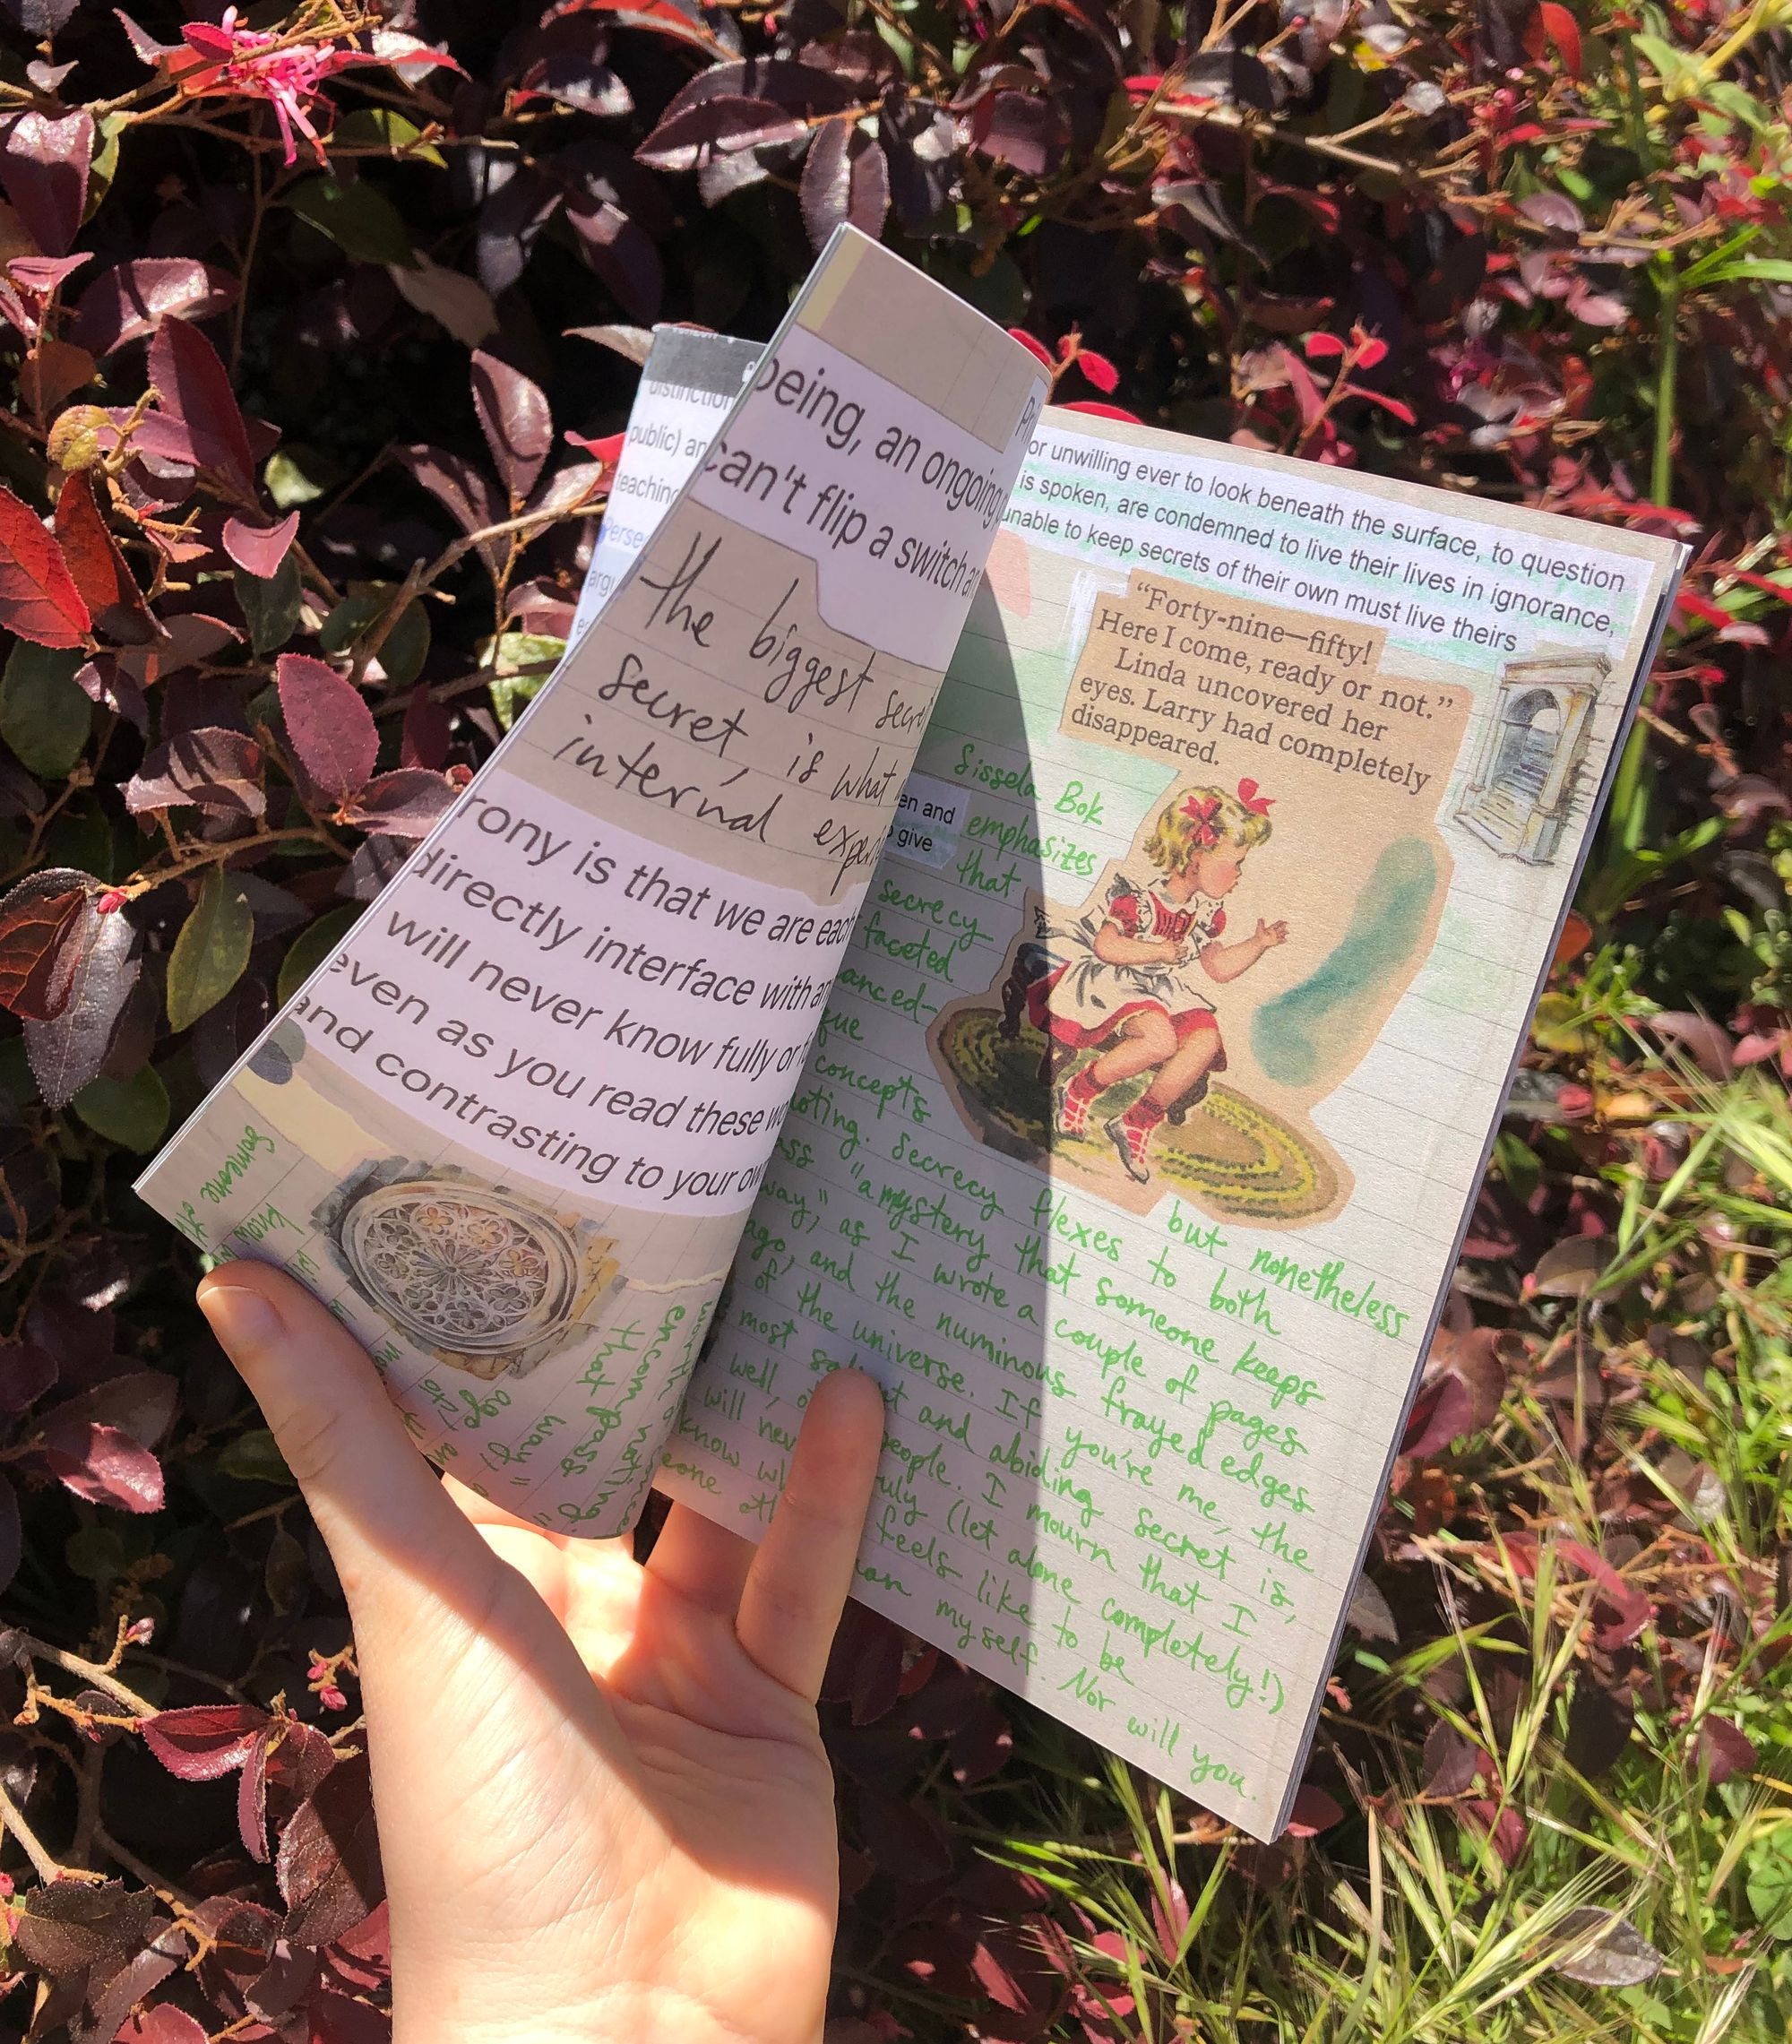 distinction
public) an
teaching
Perse
argu
being, an ongoing
can't flip a switch an
the biggest secret
secret, is what
internal expe
rony is that we are each
directly interface with an
will never know fully or
even as you read these wo
and contrasting to your ow
Someone
know
worth a
encompass
that
way"
ago
or unwilling ever to look beneath the surface, to question
is spoken, are condemned to live their lives in ignorance,
unable to keep secrets of their own must live theirs
“Forty-nine—fifty!
Here I come, ready or not.”
Linda uncovered her
eyes. Larry had completely
disappeared.
en and
give
Sissela Bok
emphasizes
that
secrecy
faceted
anced-
gue
concepts
oting. but nonetheless
Secrecy flexes to both
ss "a mystery that someone keeps
way," as I wrote a couple of pages
ago, and the numinous frayed edges
of the universe. If you're me, the
most salient and abiding secret is,
well, people. I mourn that I
will nev ruly (let alone completely!)
know wh feels like to be
eone oth an myself. Nor will you.